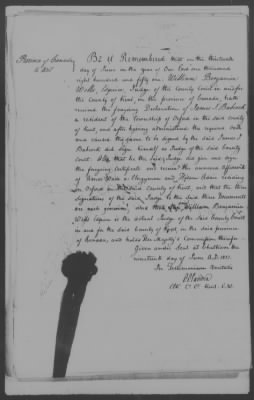 Province of Canada
to Wit
Be it Remembered that on the thirteenth
day of June in the year of Our Lord one thousand
eight hundred and fifty one. William Benjamin
Wells, Esquire, Judge of the County Court in and for
the County of Kent, in the province of Canada,
received the foregoing Declaration of James I. Babcock
a resident of the Township of Orford in the said county
of Kent, and after having administered the required oath
and caused the same to be signed by the said James I.
Babcock did sign himself as Judge of the said County
Court. Also that he the said Judge did give and sign
the foregoing Certificate and received the annexed Affidavits
of a Clergyman and residing
in Orford in the said County of Kent, and that the three
signatures of the said Judge to the said three Documents
are each genuine, and that William Benjamin
Wells Esquire is the actual Judge of the said County Court
in and for the said County of Kent, in the said province
of Canada, and holds Her Majesty's Commission therefor
Given under Seal at Chatham the
nineteenth day of June A.D. 1851.
In Testimonium Veritatis
C. C. Kent. C.W.